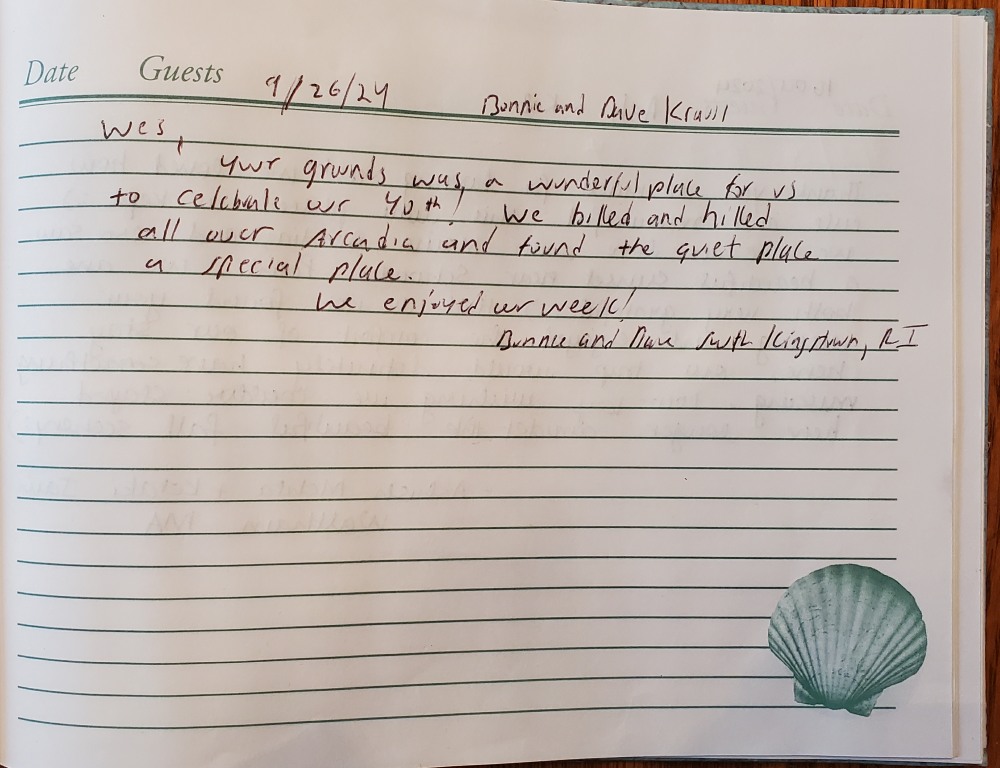 Date Guests 9/26/24 Bonnie and Dave
Wes,
your grounds was a wonderful place for us
to celebrate our 40th! We biked and hiked
all over Arcadia and found the quiet place
a special place.
We enjoyed our week!
Bonnie and Dave South Kingstown, RI